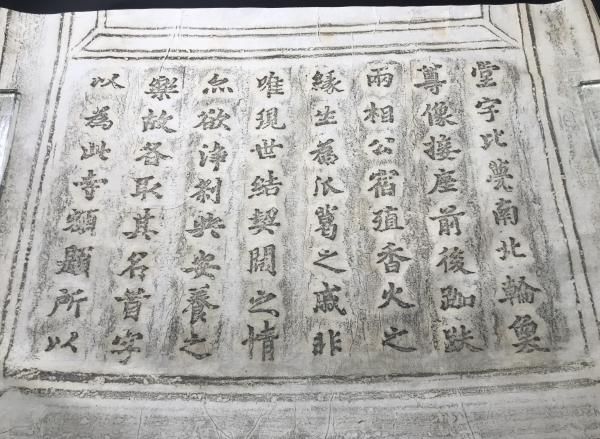 堂宇比甍南北輪奐
尊像接座前後跏趺
兩相公宿殖香火之
緣生為瓜葛之戚非
唯現世結契闊之情
亦欲淨刹共安養之
樂故各取其名首字
以為此寺額題所以